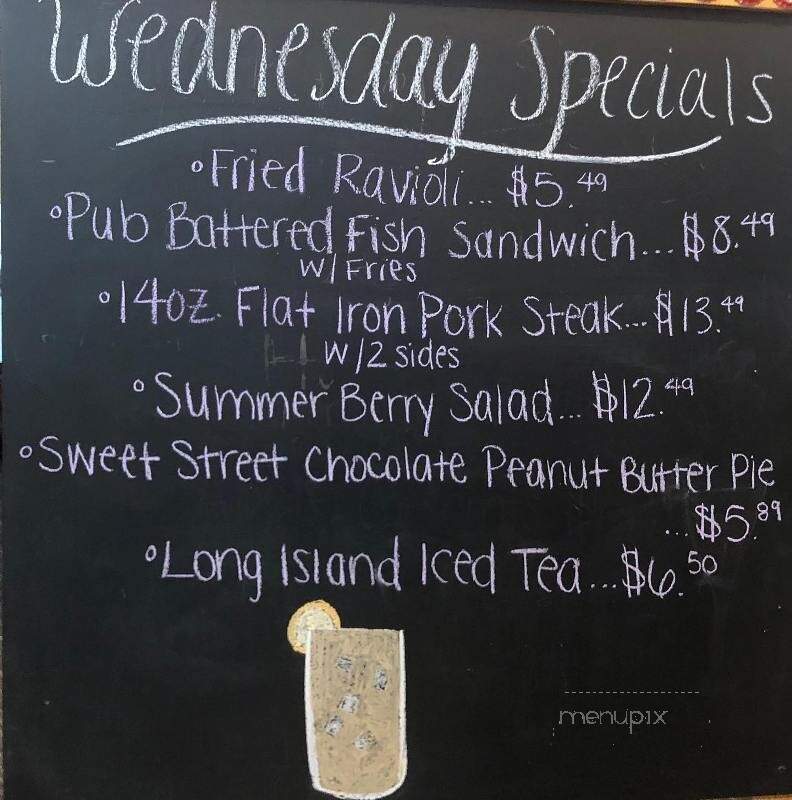 Wednesday Specials
°Fried Ravioli... $5.49
°Pub Battered Fish Sandwich... $8.49
W/ Fries
°14oz. Flat Iron Pork Steak... $13.49
W/2 sides
°Summer Berry Salad... $12.49
°Sweet Street Chocolate Peanut Butter Pie
...$5.89
°Long Island Iced Tea...$6.50
menupix